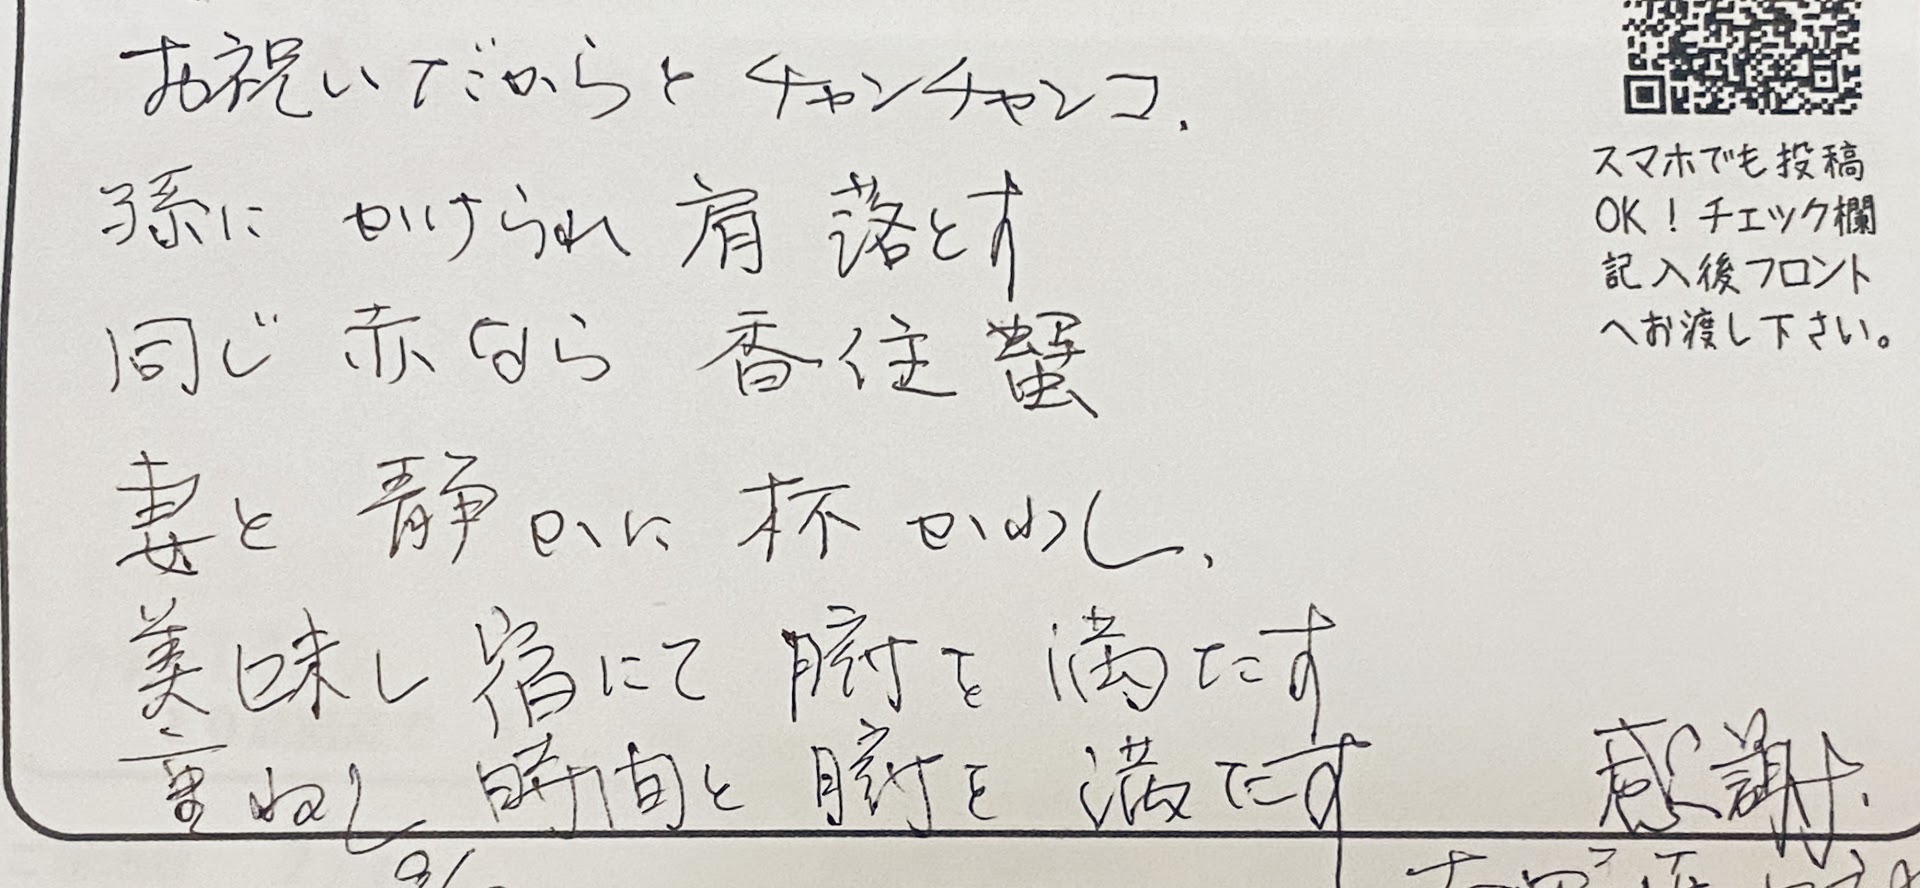 お祝いだからと チャンチャンコ、
孫に かけられ 肩 落とす
同じ 赤なら 香住 蟹
妻と 静かに 杯 かわし、
美味し 宿にて 腑を 満たす
重ねし 時間と 腑を 満たす
感謝.
スマホでも投稿
OK！チェック欄
記入後フロント
へお渡し下さい。